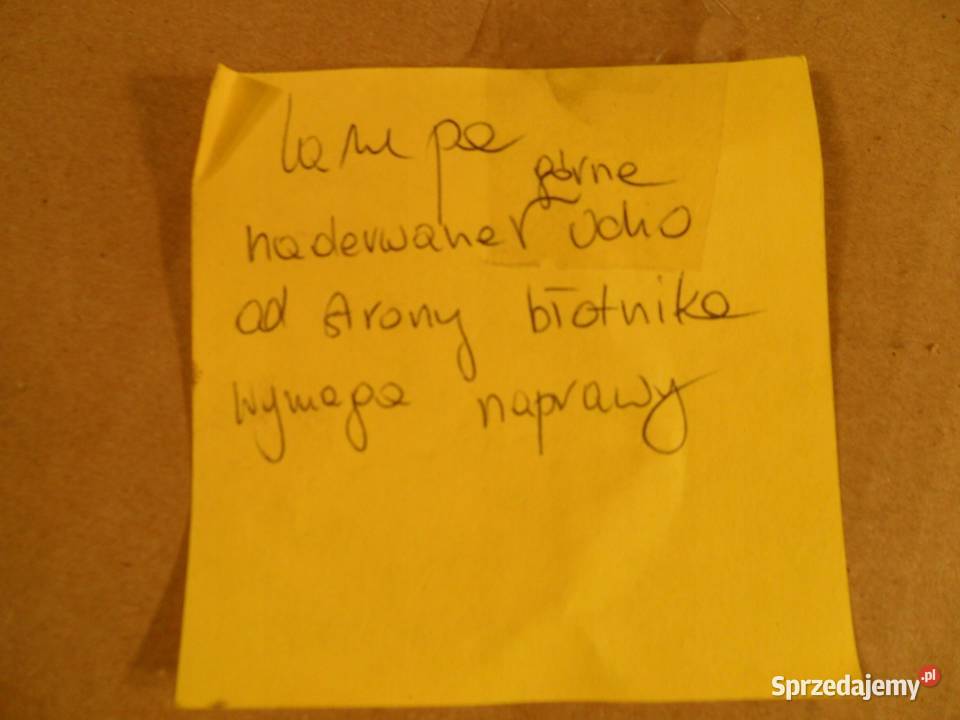 lampa
górne
naderwane ucho
od strony błotnika
wymaga naprawy
Sprzedajemy.pl